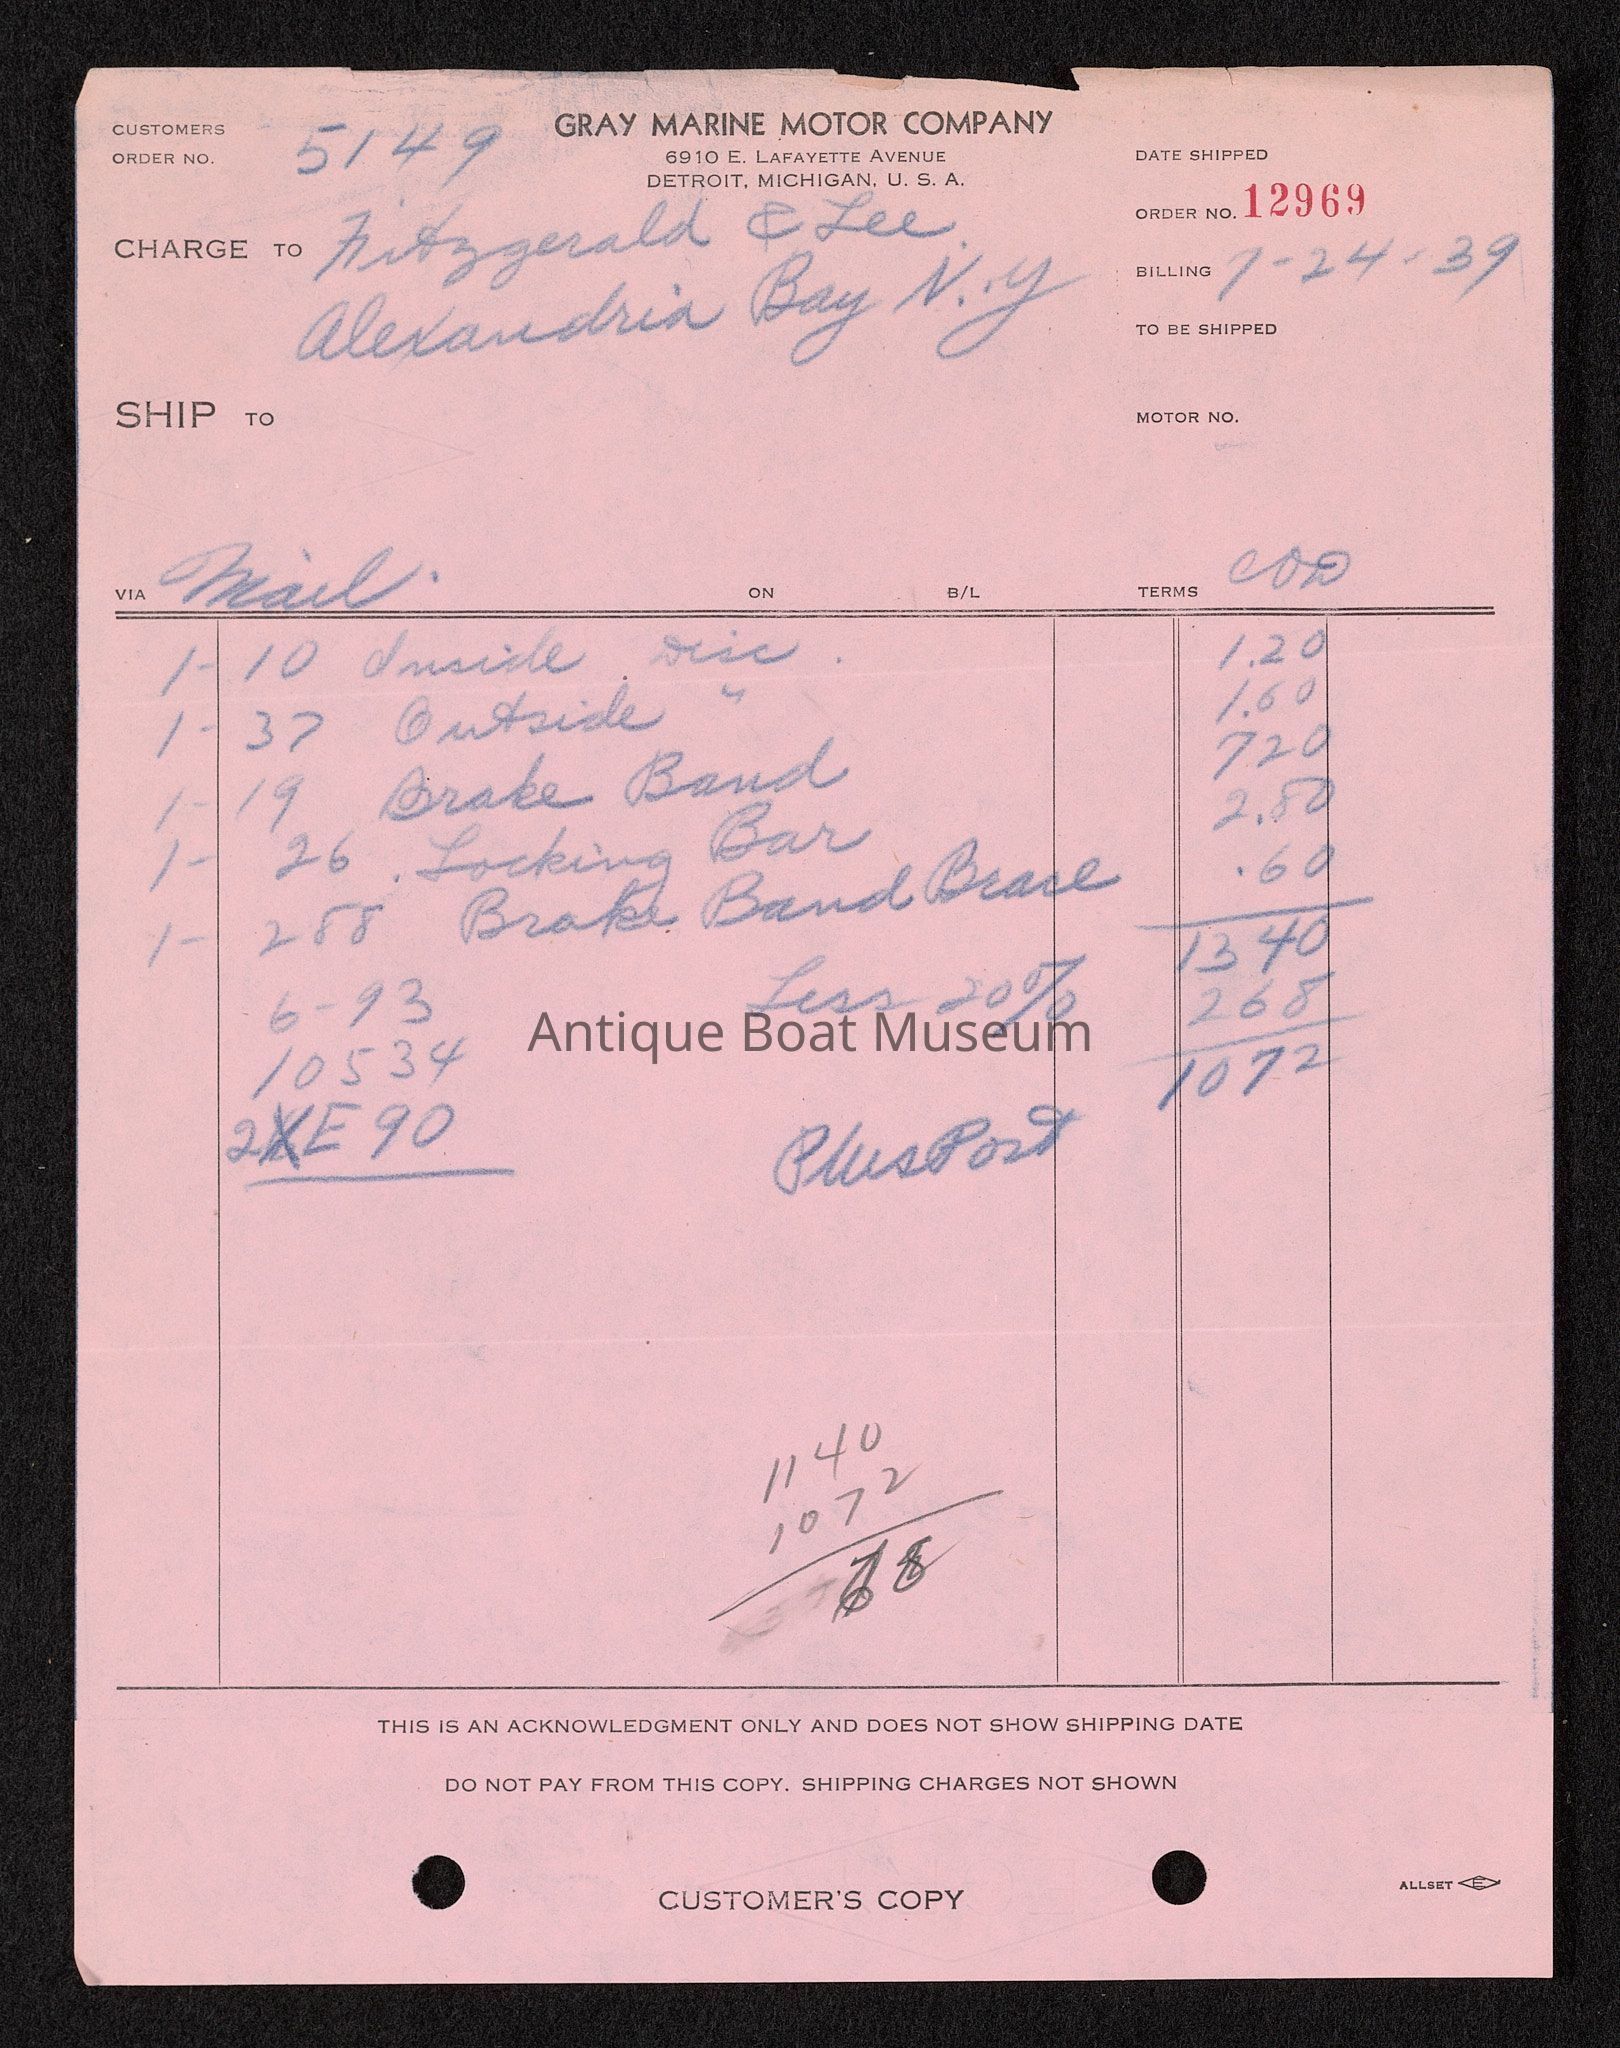 CUSTOMERS
ORDER NO. 5149
GRAY MARINE MOTOR COMPANY
6910 E. LAFAYETTE AVENUE
DETROIT, MICHIGAN, U. S. A.
DATE SHIPPED
ORDER NO. 12969
CHARGE TO Fitzgerald & Lee.
Alexandria Bay N.Y
BILLING 7-24-39
TO BE SHIPPED
SHIP TO
MOTOR NO.
VIA Mail. ON B/L TERMS COD
1- 10 Inside Disc. 1.20
1- 37 Outside " 1.60
1- 19 Brake Band 7 20
1- 26 Locking Bar 2.80
1- 288 Brake Band Brace .60
13 40
6-93 Less 20% 2 68
10534 10 72
2XE 90
Plus Post
Antique Boat Museum
11 40
10 72
68
THIS IS AN ACKNOWLEDGMENT ONLY AND DOES NOT SHOW SHIPPING DATE
DO NOT PAY FROM THIS COPY. SHIPPING CHARGES NOT SHOWN
CUSTOMER'S COPY
ALLSET E